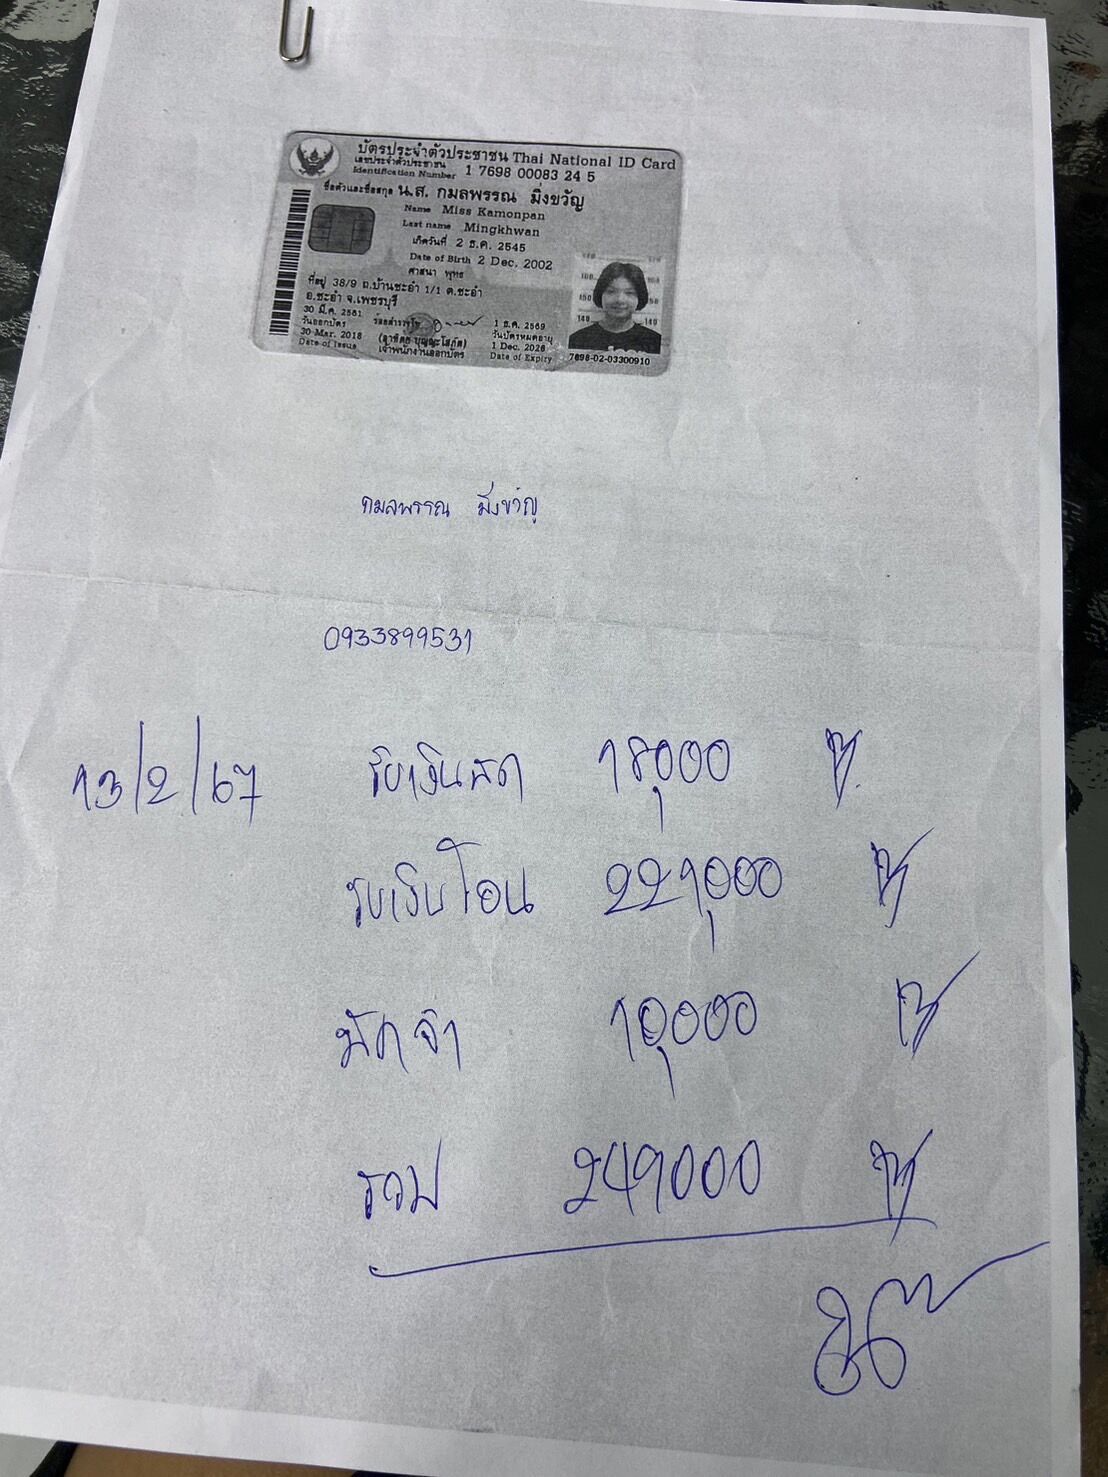 บัตรประจำตัวประชาชน Thai National ID Card
เลขประจำตัวประชาชน
Identification Number 1 7698 00083 24 5
ชื่อตัวและชื่อสกุล น.ส. กมลพรรณ มิ่งขวัญ
Name Miss Kamonpan
Last name Mingkhwan
เกิดวันที่ 2 ธ.ค. 2545
Date of Birth 2 Dec. 2002
ศาสนา พุทธ
ที่อยู่ 38/9 ถ.บ้านชะอำ 1/1 ต.ชะอำ
อ.ชะอำ จ.เพชรบุรี
30 มี.ค. 2561
วันออกบัตร
30 Mar. 2018
Date of Issue
เจ้าพนักงานออกบัตร
1 ธ.ค. 2569
วันบัตรหมดอายุ
1 Dec. 2026
Date of Expiry
7698-02-03300910
กมลพรรณ มิ่งขวัญ
0933899531
13/2/67 รับเงินสด 18,000
รับเงินโอน 221,000
มัดจำ 10,000
รวม 249000